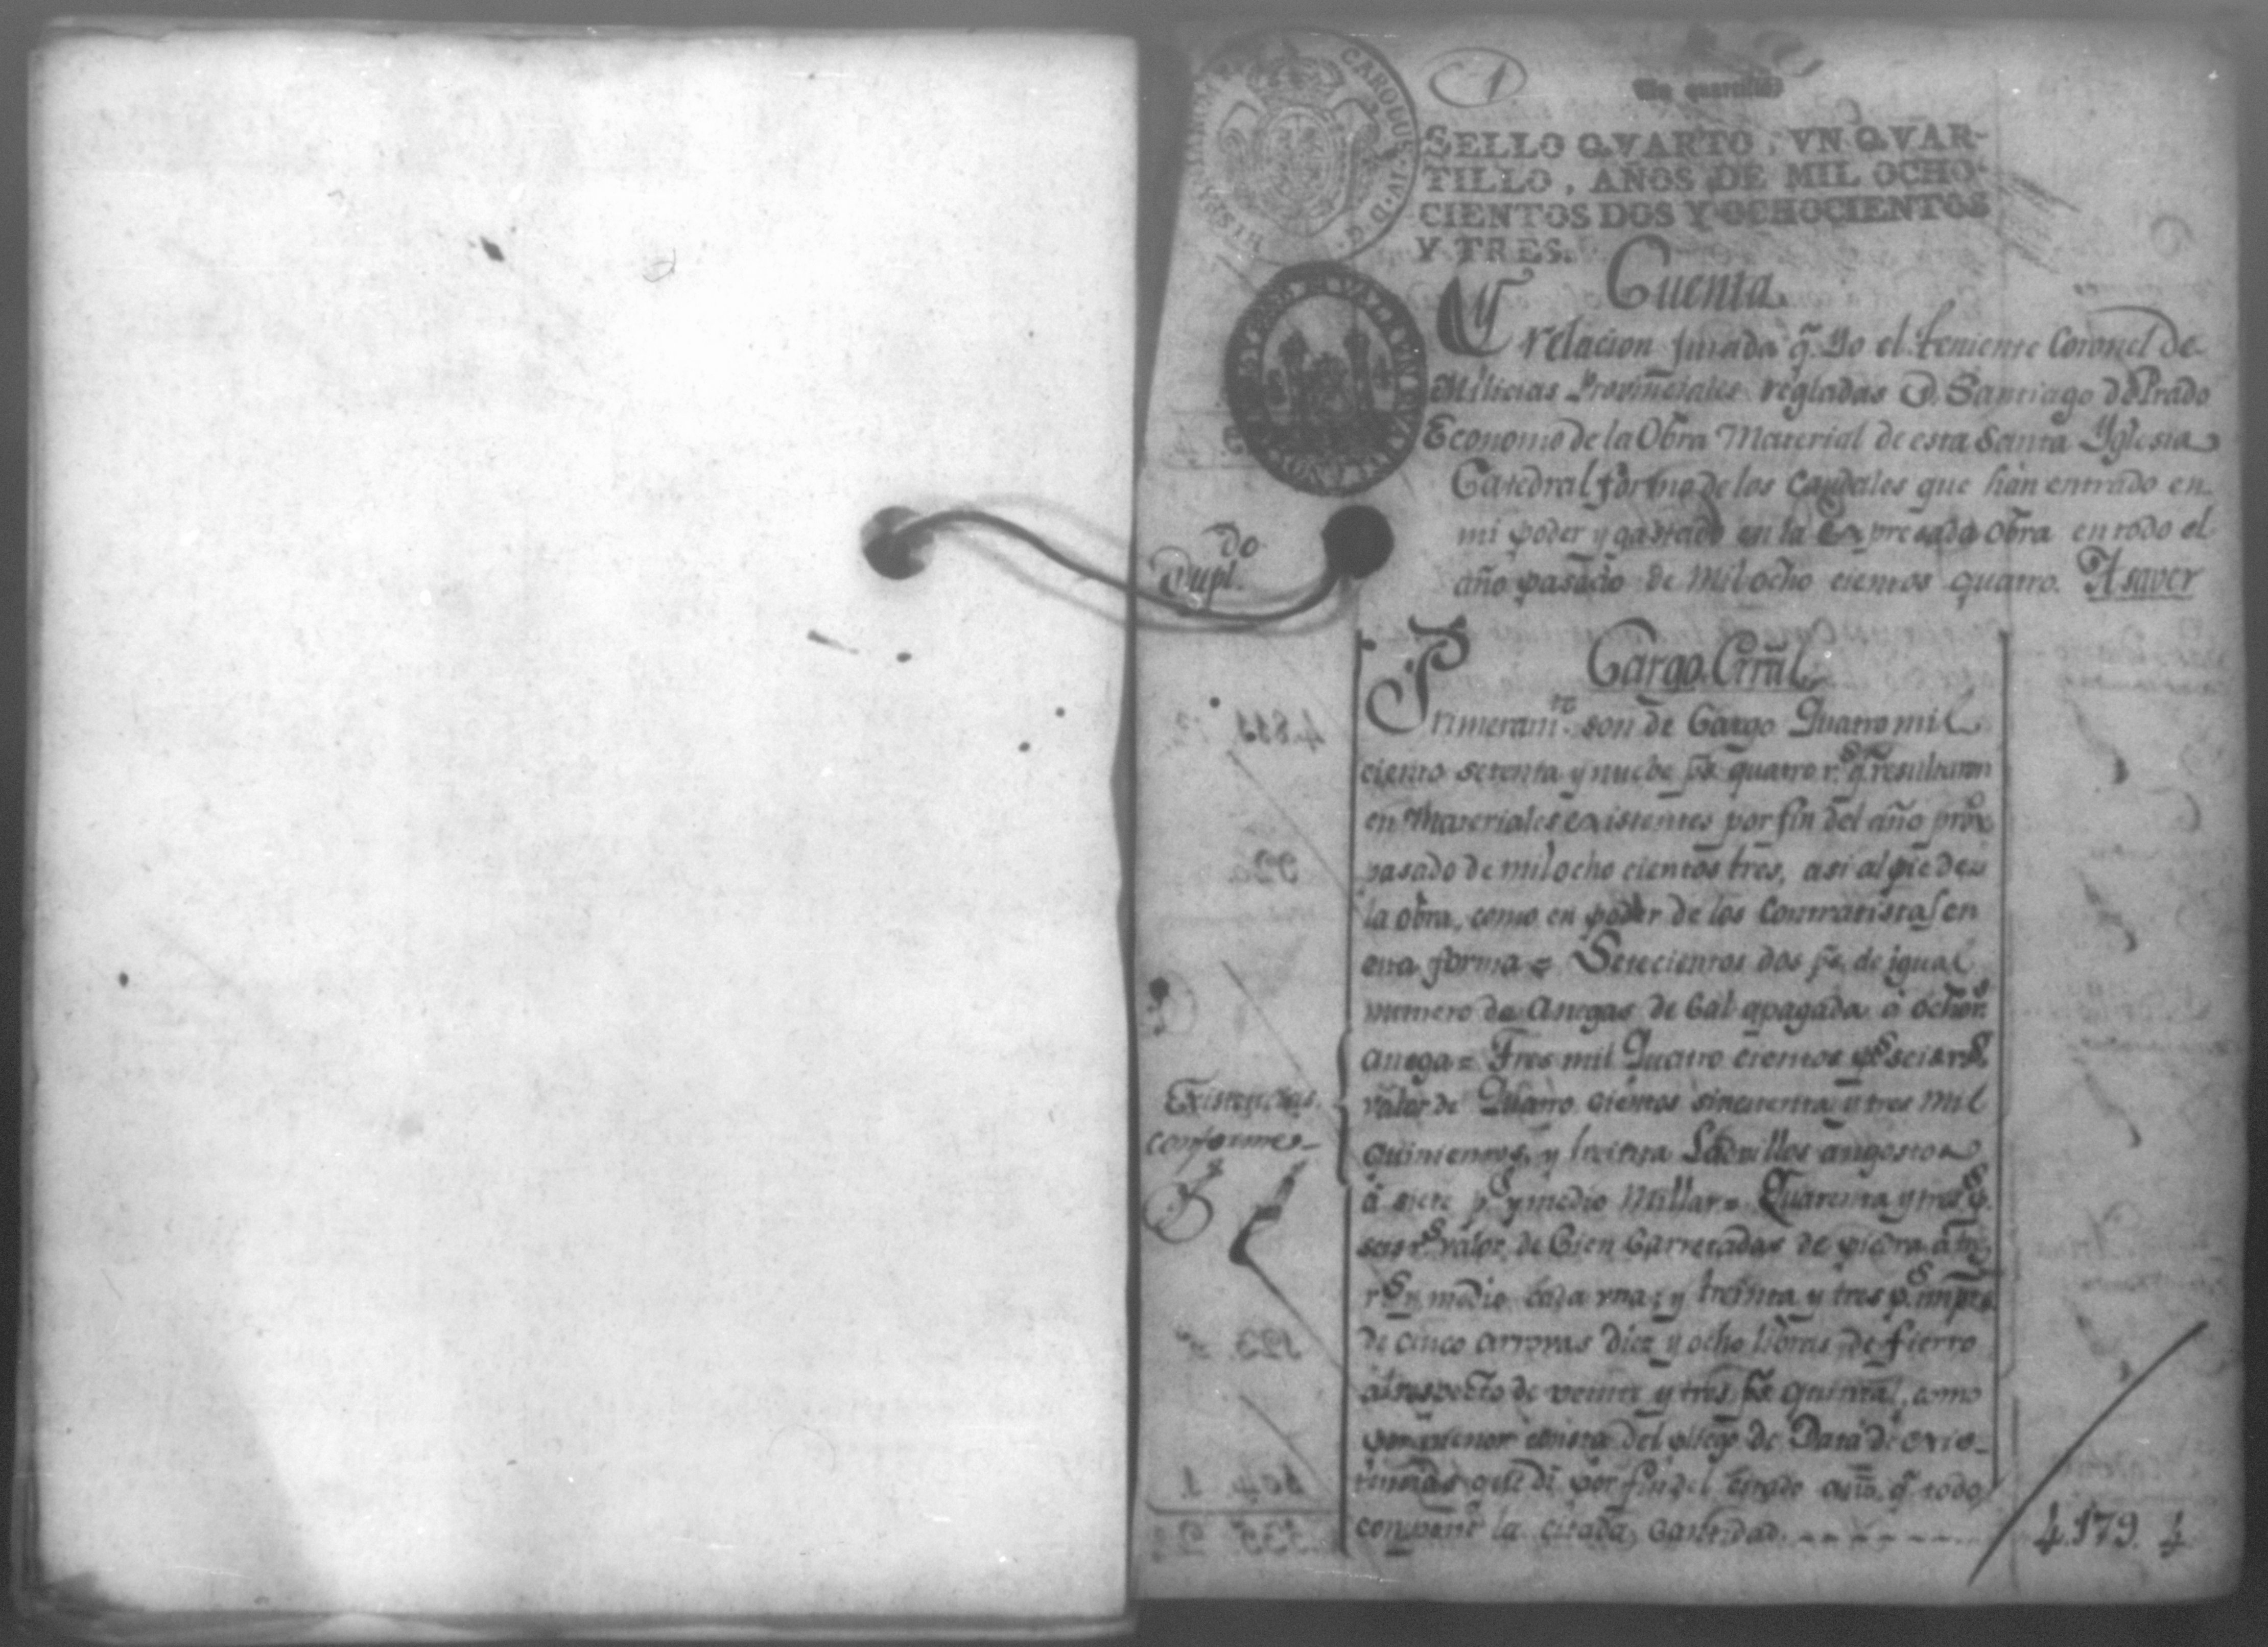 1
Un quartillo
SELLO QVARTO, VN QVAR-
TILLO, AÑOS DE MIL OCHO-
CIENTOS DOS Y OCHOCIENTOS
Y TRES.
CAROLUS IV D G
Cuenta
Y relacion jurada q.̃ Yo el teniente Coronel de
Milicias Provinciales regladas D. Santiago de Prado
Economo de la Obra Material de esta Santa Yglesia
Catedral formo de los Caudales que hán entrado en
mi poder y gastado en la Expresada obra en todo el
año pasado de mil ocho cientos quatro. A saver
Dupl.do
Cargo Grãl
Primeram.te son de Cargo Quatro mil
ciento setenta y nuebe p̃s quatro r.s q.e resultaron
en Materiales existentes por fin del año próx.o
pasado de mil ocho cientos tres, asi al pie de
la obra, como en poder de los Contratistas en
esta forma = Setecientos dos p̃s de igual
numero de anegas de Cal apagada á ocho r.s
anega = Tres mil Quatro cientos p.s seis r.s
valor de Quatro cientos sincuenta y tres mil
quinientos y treinta Ladrillos angostos
á siete p.s y medio Millar = Quarenta y tres p.s
seis r.s valor de Cien Carretadas de piedra á tres
r.s y medio cada una; y treinta y tres p.s imp.te
de cinco arrovas diez y ocho libras de fierro
al respecto de veinte y tres p̃s quintal, como
por menor consta del pliego de Data de exis-
tencias que di por fin del citado año, q.̃ todo
compone la citada cantidad
4.179. 4
Existencias
conformes